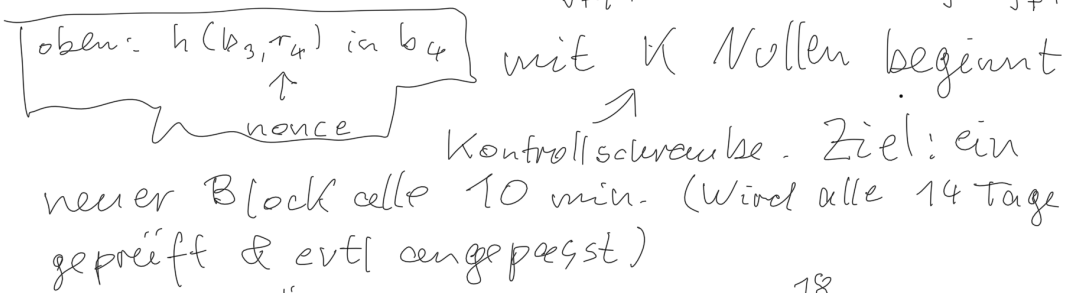 oben: h(b₃,r₄) in b₄
↑
nonce
mit K Nullen beginnt
Kontrollschraube. Ziel: ein
neuer Block alle 10 min. (Wird alle 14 Tage
geprüft & evtl angepasst)
18